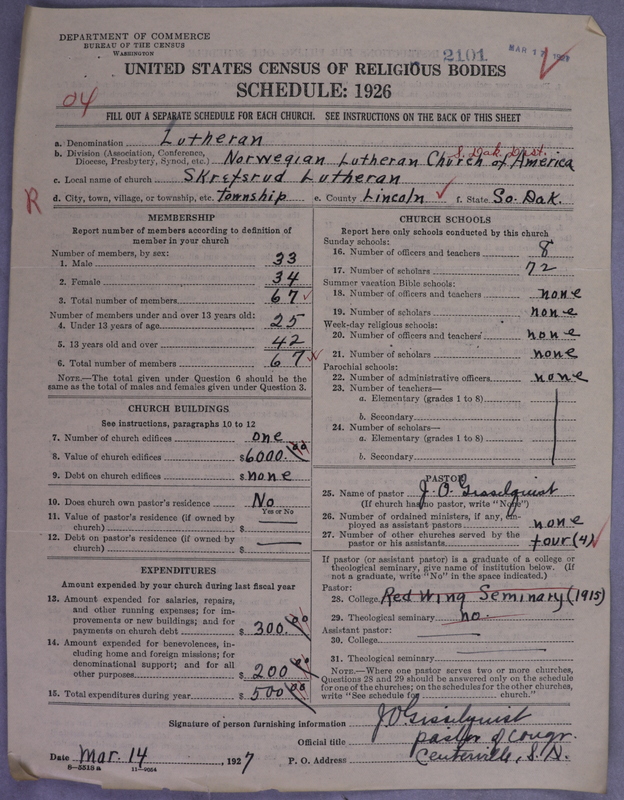 DEPARTMENT OF COMMERCE
BUREAU OF THE CENSUS
WASHINGTON
2101
MAR 17
UNITED STATES CENSUS OF RELIGIOUS BODIES
SCHEDULE: 1926
04
FILL OUT A SEPARATE SCHEDULE FOR EACH CHURCH. SEE INSTRUCTIONS ON THE BACK OF THIS SHEET
a. Denomination Lutheran
S. Dak. Dist.
b. Division (Association, Conference, Diocese, Presbytery, Synod, etc.) Norwegian Lutheran Church of America
c. Local name of church Skrefsrud Lutheran
R
d. City, town, village, or township, etc. Township e. County Lincoln f. State So. Dak.
MEMBERSHIP
Report number of members according to definition of
member in your church
Number of members, by sex:
1. Male 33
2. Female 34
3. Total number of members 67
Number of members under and over 13 years old:
4. Under 13 years of age 25
5. 13 years old and over 42
6. Total number of members 67
NOTE.—The total given under Question 6 should be
same as the total of males and females given under Question 3.
CHURCH BUILDINGS
See instructions, paragraphs 10 to 12
7. Number of church edifices one
8. Value of church edifices $6000.00
9. Debt on church edifices $none
10. Does church own pastor's residence No
Yes or No
11. Value of pastor's residence (if owned by
church) $
12. Debt on pastor's residence (if owned by
church) $
EXPENDITURES
Amount expended by your church during last fiscal year
13. Amount expended for salaries, repairs,
and other running expenses; for im-
provements or new buildings; and for
payments on church debt $300.00
14. Amount expended for benevolences, in-
cluding home and foreign missions; for
denominational support; and for all
other purposes $200.00
15. Total expenditures during year $500.00
CHURCH SCHOOLS
Report here only schools conducted by this church
Sunday schools:
16. Number of officers and teachers 8
17. Number of scholars 72
Summer vacation Bible schools:
18. Number of officers and teachers none
19. Number of scholars none
Week-day religious schools:
20. Number of officers and teachers none
21. Number of scholars none
Parochial schools:
22. Number of administrative officers none
23. Number of teachers—
a. Elementary (grades 1 to 8)
b. Secondary
24. Number of scholars—
a. Elementary (grades 1 to 8)
b. Secondary
PASTOR
25. Name of pastor J. O. Gisselquist
(If church has no pastor, write "None")
26. Number of ordained ministers, if any, em-
ployed as assistant pastors none
27. Number of other churches served by the
pastor or his assistants four (4)
If pastor (or assistant pastor) is a graduate of a college or
theological seminary, give name of institution below. (If
not a graduate, write "No" in the space indicated.)
Pastor:
28. College Red Wing Seminary (1915)
29. Theological seminary no.
Assistant pastor:
30. College
31. Theological seminary
NOTE.—Where one pastor serves two or more churches,
Questions 28 and 29 should be answered only on the schedule
for one of the churches; on the schedules for the other churches,
write "See schedule for church."
Signature of person furnishing information J O Gisselquist
Official title pastor of congr.
Date Mar. 14, 1927 P. O. Address Centerville, S. D.
8-5518 a 11-9054